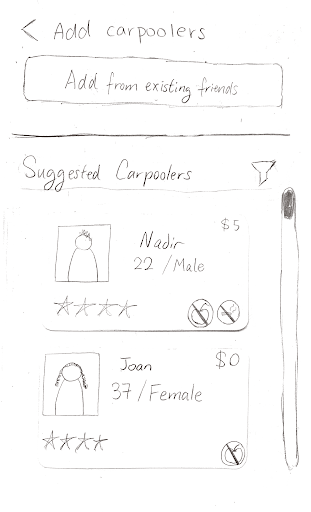 Add carpoolers
Add from existing friends
Suggested Carpoolers
$5
Nadir
22 /Male
$0
Joan
37 /Female